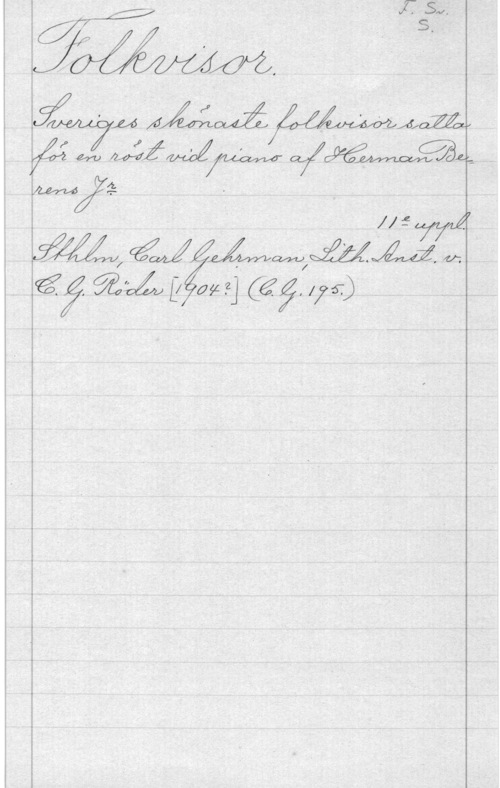 F. Sv.
S.
Folkvisor.
Sveriges skönaste folkvisor satta
för en röst vid piano af Herman Be=
rens Jr
11e uppl.
Sthlm, Carl Gehrman, Lith. Anst. v.
C. G. Röder [1904?] (C. G. 195.)